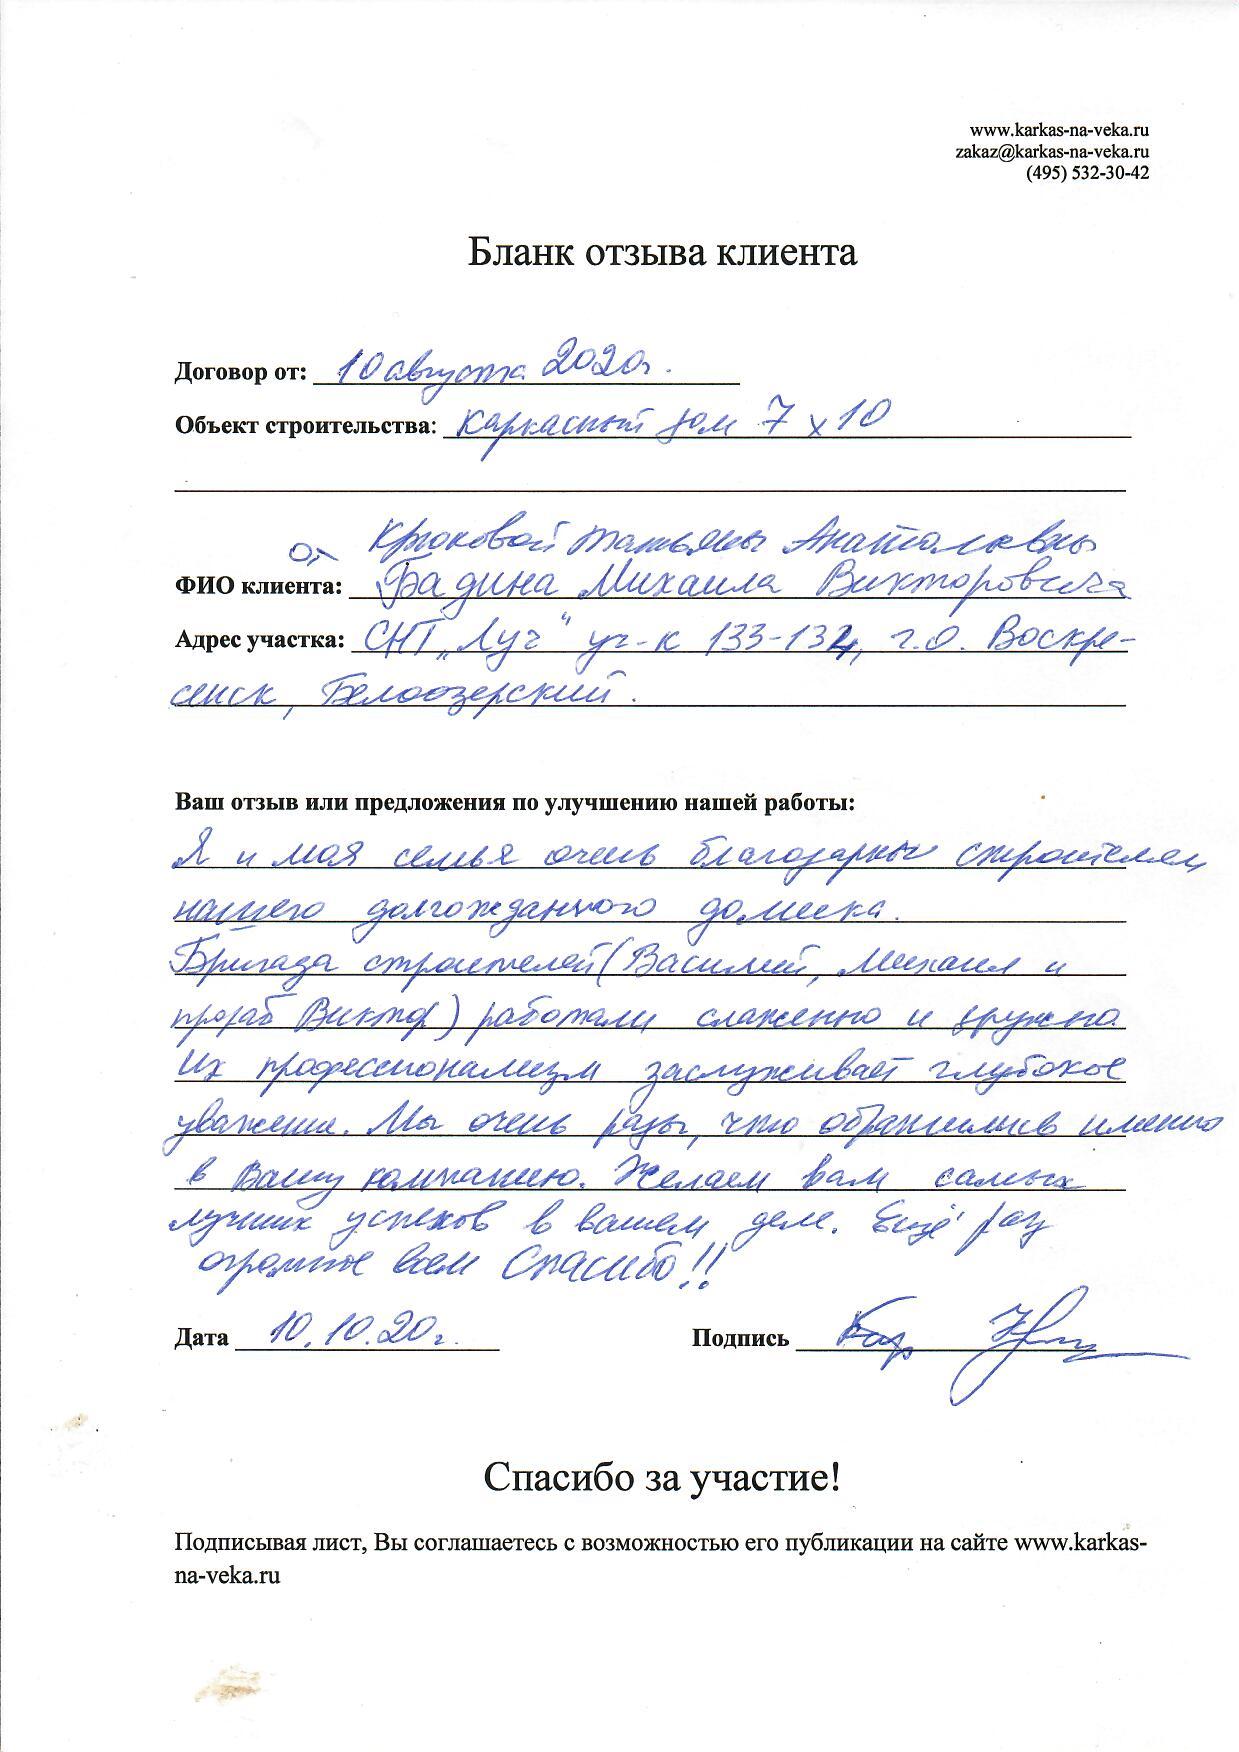 www.karkas-na-veka.ru
zakaz@karkas-na-veka.ru
(495) 532-30-42
Бланк отзыва клиента
Договор от: 10 августа 2020г.
Объект строительства: каркасный дом 7 х 10
От Крюковой Татьяны Анатольевны
ФИО клиента: Бадина Михаила Викторовича
Адрес участка: СНТ „Луч“ уч-к 133-134, г.о. Воскре-
сенск, Белоозерский.
Ваш отзыв или предложения по улучшению нашей работы:
Я и моя семья очень благодарны строителям
нашего долгожданного домика.
Бригада строителей (Василий, Михаил и
прораб Виктор) работали слаженно и дружно.
Их профессионализм заслуживает глубокое
уважение. Мы очень рады, что обратились именно
в Вашу компанию. Желаем вам самых
лучших успехов в вашем деле. Ещё раз
огромное всем Спасибо!!
Дата 10.10.20г.
Подпись
Спасибо за участие!
Подписывая лист, Вы соглашаетесь с возможностью его публикации на сайте www.karkas-
na-veka.ru